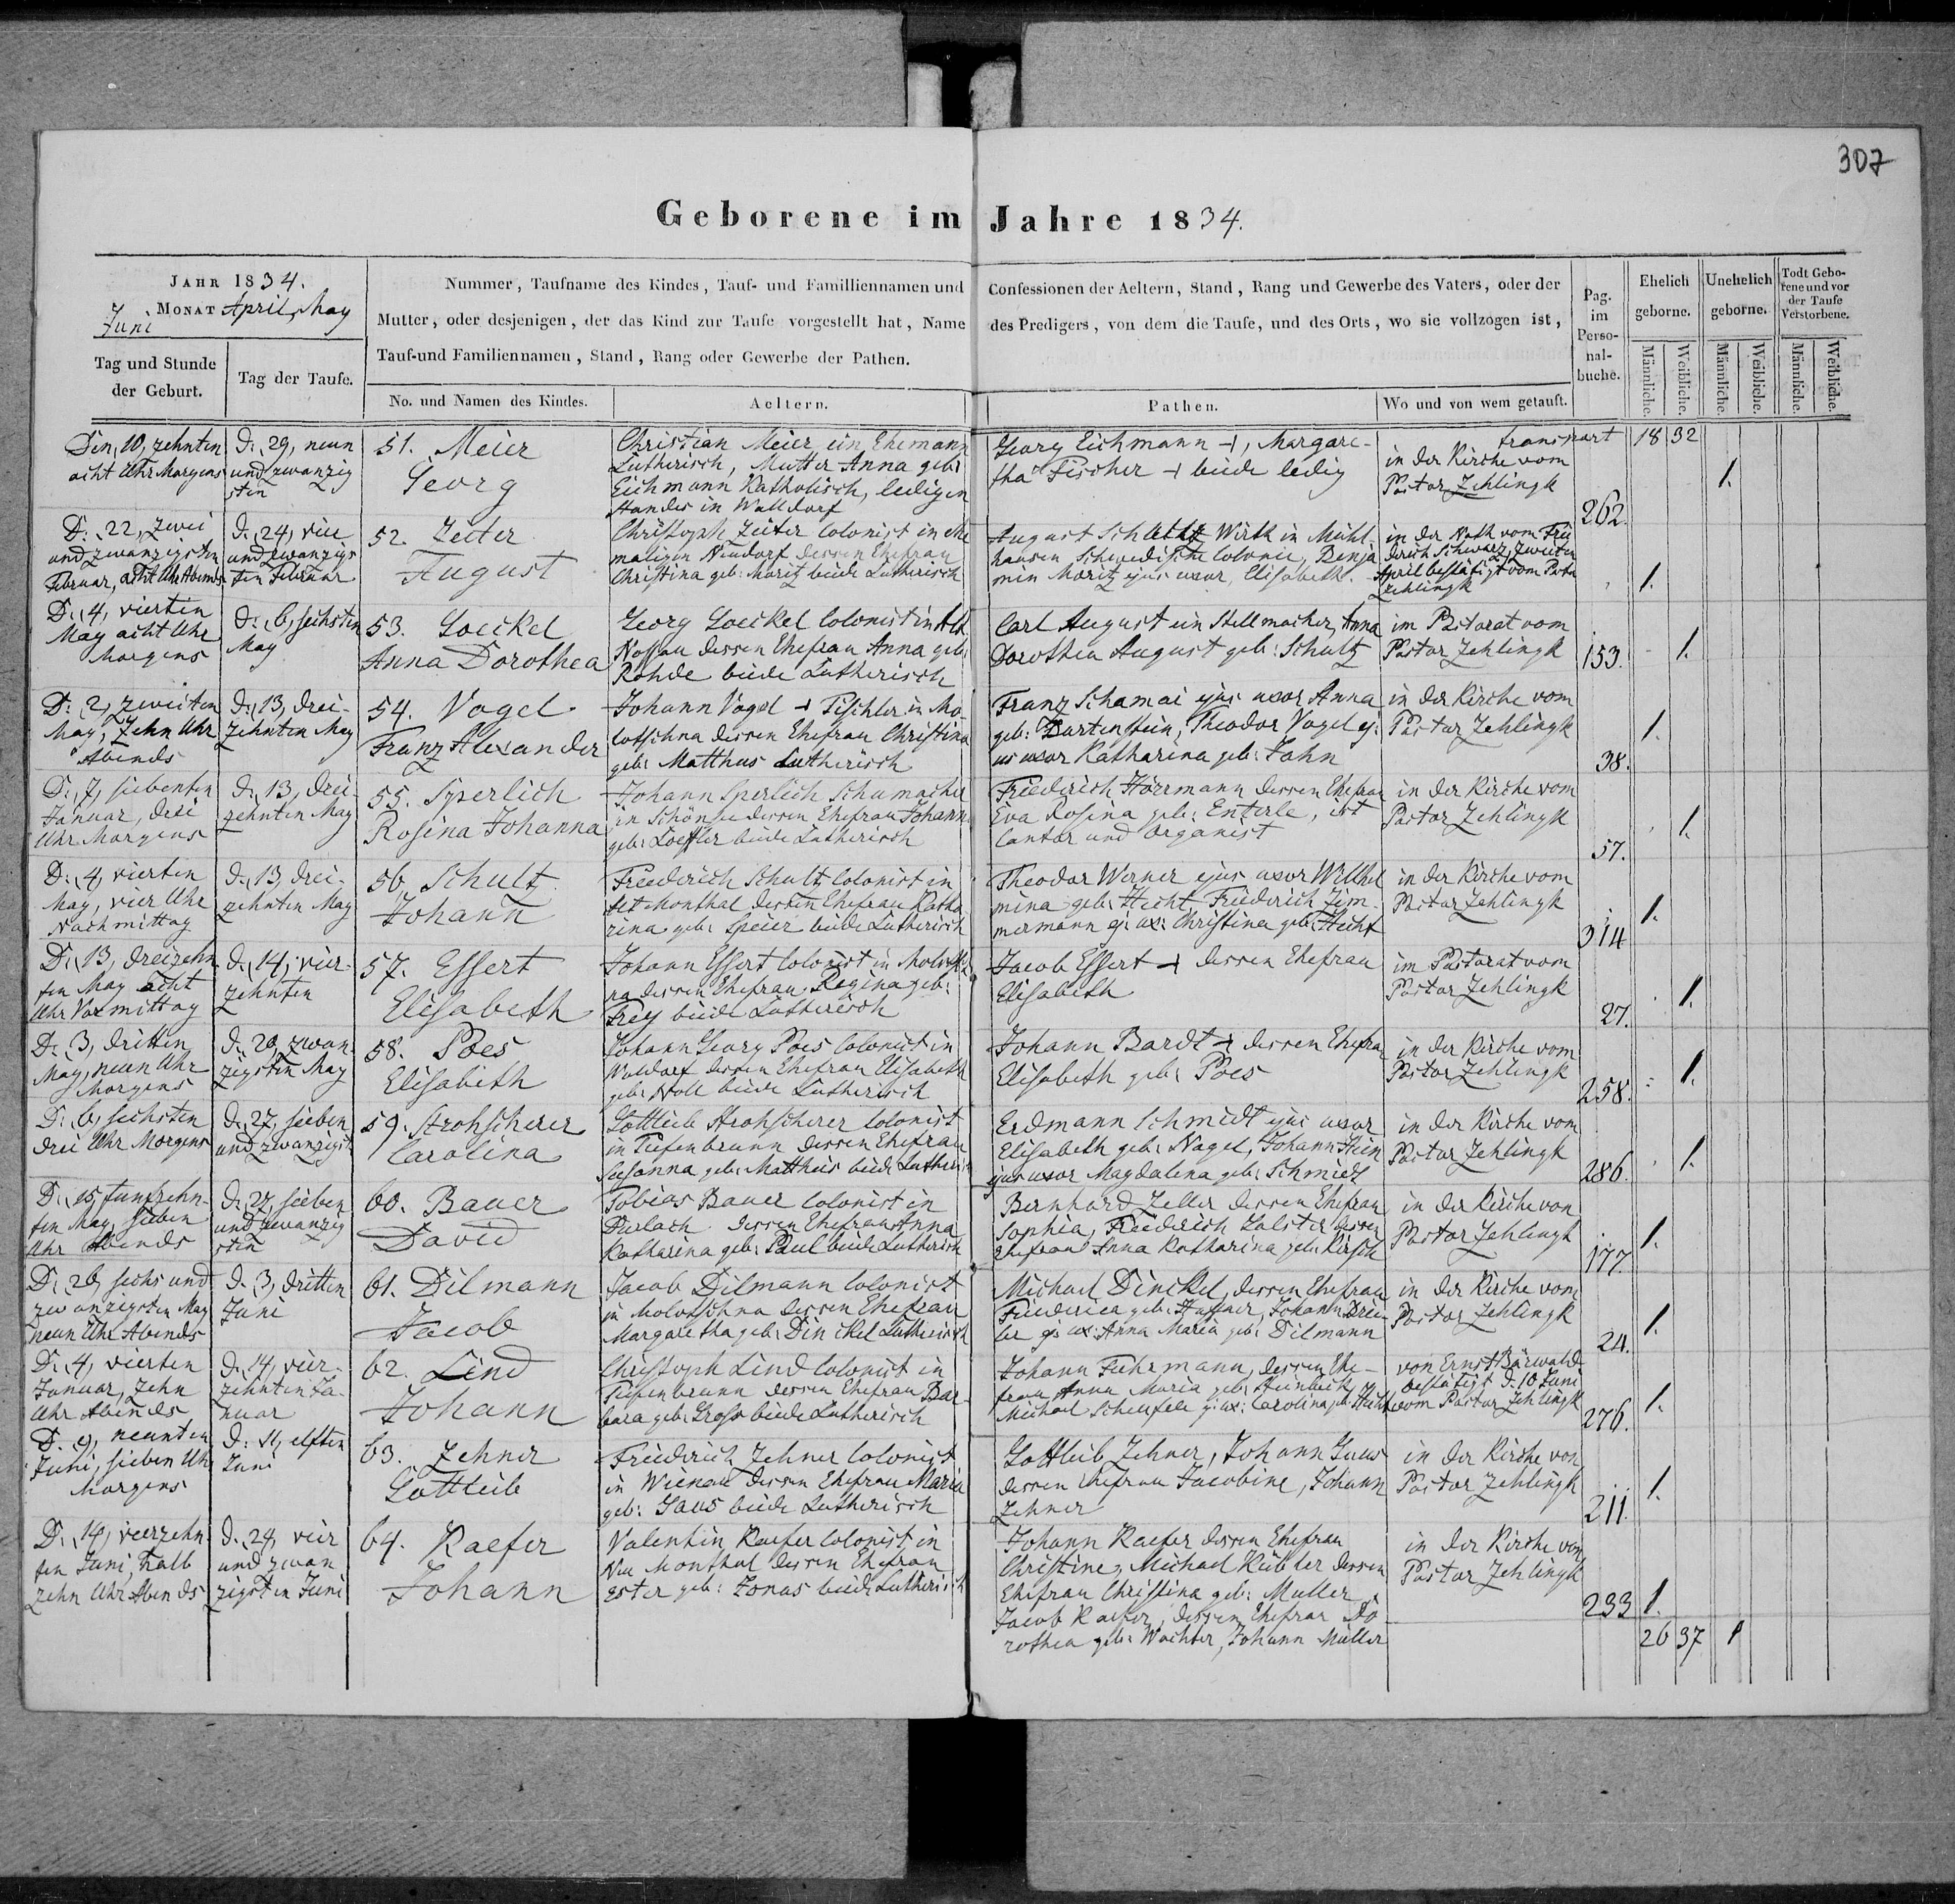 307
Geborene im Jahre 1834.
JAHR 1834.
MONAT April, May
Juni
Tag und Stunde
der Geburt.
Tag der Taufe.
Nummer, Taufname des Kindes, Tauf- und Familliennamen und
Mutter, oder desjenigen, der das Kind zur Taufe vorgestellt hat, Name
Tauf-und Familiennamen, Stand, Rang oder Gewerbe der Pathen.
No. und Namen des Kindes.
Aeltern.
Confessionen der Aeltern, Stand, Rang und Gewerbe des Vaters, oder der
des Predigers, von dem die Taufe, und des Orts, wo sie vollzogen ist,
Pathen.
Wo und von wem getauft.
Pag.
im
Perso-
nal-
buche.
Ehelich
geborne.
Unehelich
geborne.
Todt Gebo-
rene und vor
der Taufe
Verstorbene.
Männliche.
Weibliche.
Männliche.
Weibliche.
Männliche.
Weibliche.
transport 18 32
Den, 10, zehnten
acht Uhr Morgens
d. 29, neun
und zwanzig
sten
51. Meier
Georg
Christian Meier ein Ehemann
Lutherisch, Mutter Anna geb:
Eichmann Katholisch, ledigen
Standes in Walldorf
Georg Eichmann, Margare-
tha Fischer beide ledig
in der Kirche vom
Pastor Zehlingk
262.
1.
D. 22, zwei
und zwanzigsten
Februar, acht Uhr Abends
d. 24, vier
und zwanzigs
ten Februar
52. Zeiter
August
Christoph Zeiter Colonist in ehe
maligen Neudorf dessen Ehefrau
Christina geb: Moritz beide Lutherisch
August Wirth in Mühl-
hausen Schwedische Colonie, Benja
min Moritz ejus uxor, Elisabeth.
in der Noth vom Frie
derich Schwarz, zweiten
April bestätigt vom Pastor
Zehlingk
1.
D. 4, vierten
May acht Uhr
Morgens
d. 6, sechsten
May
53. Goeckel
Anna Dorothea
Georg Goeckel Colonist in Alt
Nassau dessen Ehefrau Anna geb:
Rohde beide Lutherisch
Carl August ein Stellmacher, Anna
Dorothea August geb: Schultz
im Pastorat vom
Pastor Zehlingk
153.
1.
D: 2, zweiten
May, Zehn Uhr
Abends
d. 13, drei-
zehnten May
54. Vogel
Franz Alexander
Johann Vogel Tischler in Mo
lotschna dessen Ehefrau Christina
geb: Matthus Lutherisch
Franz Schamai ejus uxor Anna
geb: Dartenstein, Theodor Vogel ej-
us uxor Katharina geb: Jahn
in der Kirche vom
Pastor Zehlingk
38.
1.
D. 7, siebenten
Januar, drei
Uhr Morgens
d. 13, drei-
zehnten May
55. Sperlich
Rosina Johanna
Johann Sperlich Schumacher
in Schönsee dessen Ehefrau Johanna
geb: Loeffler beide Lutherisch
Friederich Hörrmann dessen Ehefrau
Eva Rosina geb: Enterle, ist
Cantor und Organist
in der Kirche vom
Pastor Zehlingk
57.
1.
D. 4, vierten
May, vier Uhr
Nachmittag
d. 13, drei-
zehnten May
56. Schultz
Johann
Freederich Schultz Colonist in
Alt Monthal dessen Ehefrau Katha
rina geb: Speier beide Lutherisch
Theodor Werner ejus uxor Wilhel
mina geb: Hecht, Friederich Zim-
mermann ej: ux: Christina geb: Hecht
in der Kirche vom
Pastor Zehlingk
314
1.
D. 13, dreizehn
ten May acht
Uhr Vormittag
d. 14, vier-
zehnten
57. Essert
Elisabeth
Johann Essert Colonist in Molotsch
na dessen Ehefrau Regina geb:
Frey beide Lutherisch
Jacob Essert dessen Ehefrau
Elisabeth
im Pastorat vom
Pastor Zehlingk
27.
1.
D. 3, dritten
May, neun Uhr
Morgens
d. 20, zwan-
zigsten May
58. Poes
Elisabeth
Johann Georg Poes Colonist in
Waldorf dessen Ehefrau Elisabeth
geb: Noll beide Lutherisch
Johann Bardt dessen Ehefrau
Elisabeth geb: Poes
in der Kirche vom
Pastor Zehlingk
258.
1.
D. 6, sechsten
drei Uhr Morgens
d. 27, sieben
und zwanzigst
59. Strohscherer
Carolina
Gottlieb Strohscherer Colonist
in Tiefenbrunn dessen Ehefrau
Susanna geb: Mattheis beide Lutherisch
Erdmann Schmidt ejus uxor
Elisabeth geb: Nagel, Johann Hein
ejus uxor Magdalena geb: Schmiel
in der Kirche vom
Pastor Zehlingk
286.
1.
D. 15, funfzehn-
ten May, sieben
Uhr Abends
d. 27, sieben
und zwanzig
sten
60. Bauer
David
Tobias Bauer Colonist in
Durlach dessen Ehefrau Anna
Katharina geb: Paul beide Lutherisch
Bernhard Zeller dessen Ehefrau
Sophia, Friederich Galster dessen
Ehefrau Anna Katharina geb: Kirsch
in der Kirche von
Pastor Zehlingk
177.
1.
D. 26, sechs und
zwanzigsten May
neun Uhr Abends
d. 3, dritten
Juni
61. Dilmann
Jacob
Jacob Dilmann Colonist
in Molotschna dessen Ehefrau
Margaretha geb: Dinckel Lutherisch
Michael Dinckel, dessen Ehefrau
Friederica geb: Johann Drie-
ler ej: ux: Anna Maria geb: Dilmann
in der Kirche vom
Pastor Zehlingk
24.
1.
D. 4, vierten
Januar, Zehn
Uhr Abends
d. 14, vier-
zehnten Ja-
nuar
62. Lind
Johann
Christoph Lind Colonist in
Tiefenbrunn dessen Ehefrau Bar-
bara geb: Gross beide Lutherisch
Johann Fuhrmann, dessen Ehe-
frau Anna Maria geb: Steinbich,
Michael Scheufele ej: ux: Carolina geb: Hecht
von Ernst Bärwald
bestätigt d. 10 Juni
vom Pastor Zehlingk
276.
1.
D. 9, neunten
Juni, sieben Uhr
Morgens
d: 11, elften
Juni
63. Zehner
Gottlieb
Friederich Zehner Colonist
in Wienau dessen Ehefrau Maria
geb: Saus beide Lutherisch
Gottlieb Zehner, Johann
dessen Ehefrau Jacobine, Johann
Zehner
in der Kirche von
Pastor Zehlingk
211.
1.
D. 14, vierzehn
ten Juni, halb
zehn Uhr Abends
d. 24, vier
und zwan
zigsten Juni
64. Kaefer
Johann
Valentin Kaefer Colonist in
Neu Monthal dessen Ehefrau
Ester geb: Jonas beide Lutherisch
Johann Kaefer dessen Ehefrau
Christine, Michael Kübler dessen
Ehefrau Christina geb: Muller
Jacob Kaefer, dessen Ehefrau Do-
rothea geb: Wachter, Johann Müller
in der Kirche von
Pastor Zehlingk
233
1.
26 37 1